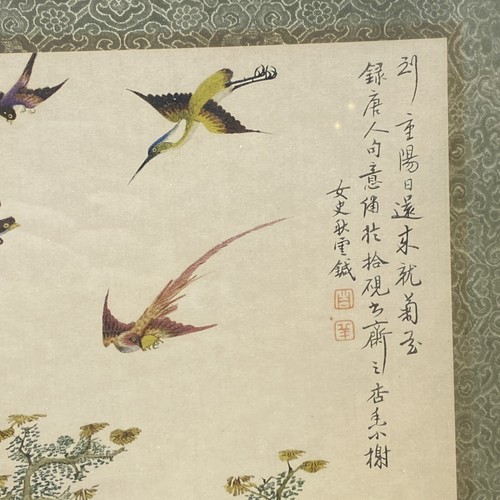 到重陽日還來就菊花
錄唐人句意繡於拾硯書齋之杏壬小榭
女史耿雲鍼